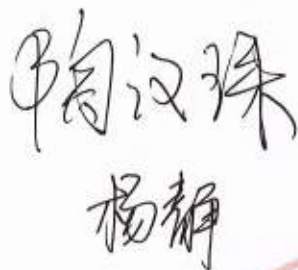 陶汉珠
杨静